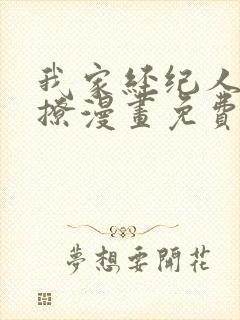 我家经纪人
撩漫畫免費
夢想要開花